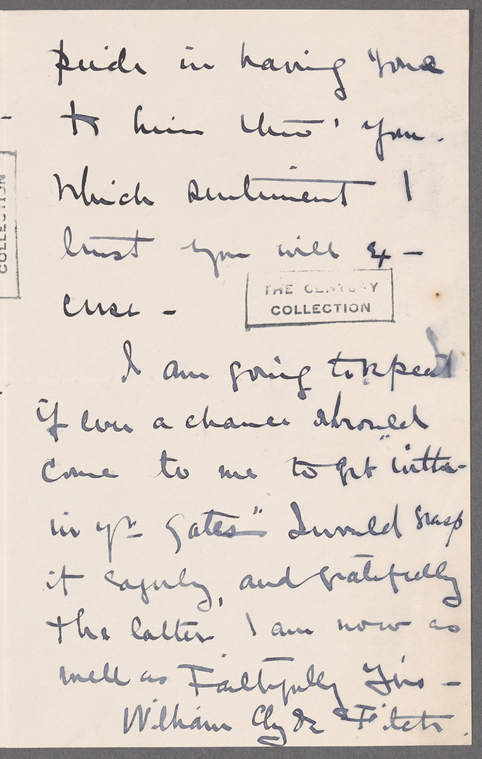 pride in having yours
to him thro' you.
Which sentiment I
trust you will ex-
cuse -
THE CENTURY
COLLECTION
COLLECTION
I am going to repeat
if ever a chance should
come to me to get "within-
in yr gates" I would grasp
it eagerly, and gratefully
the latter I am now as
well as Faithfully Yrs -
William Clyde Fitch.